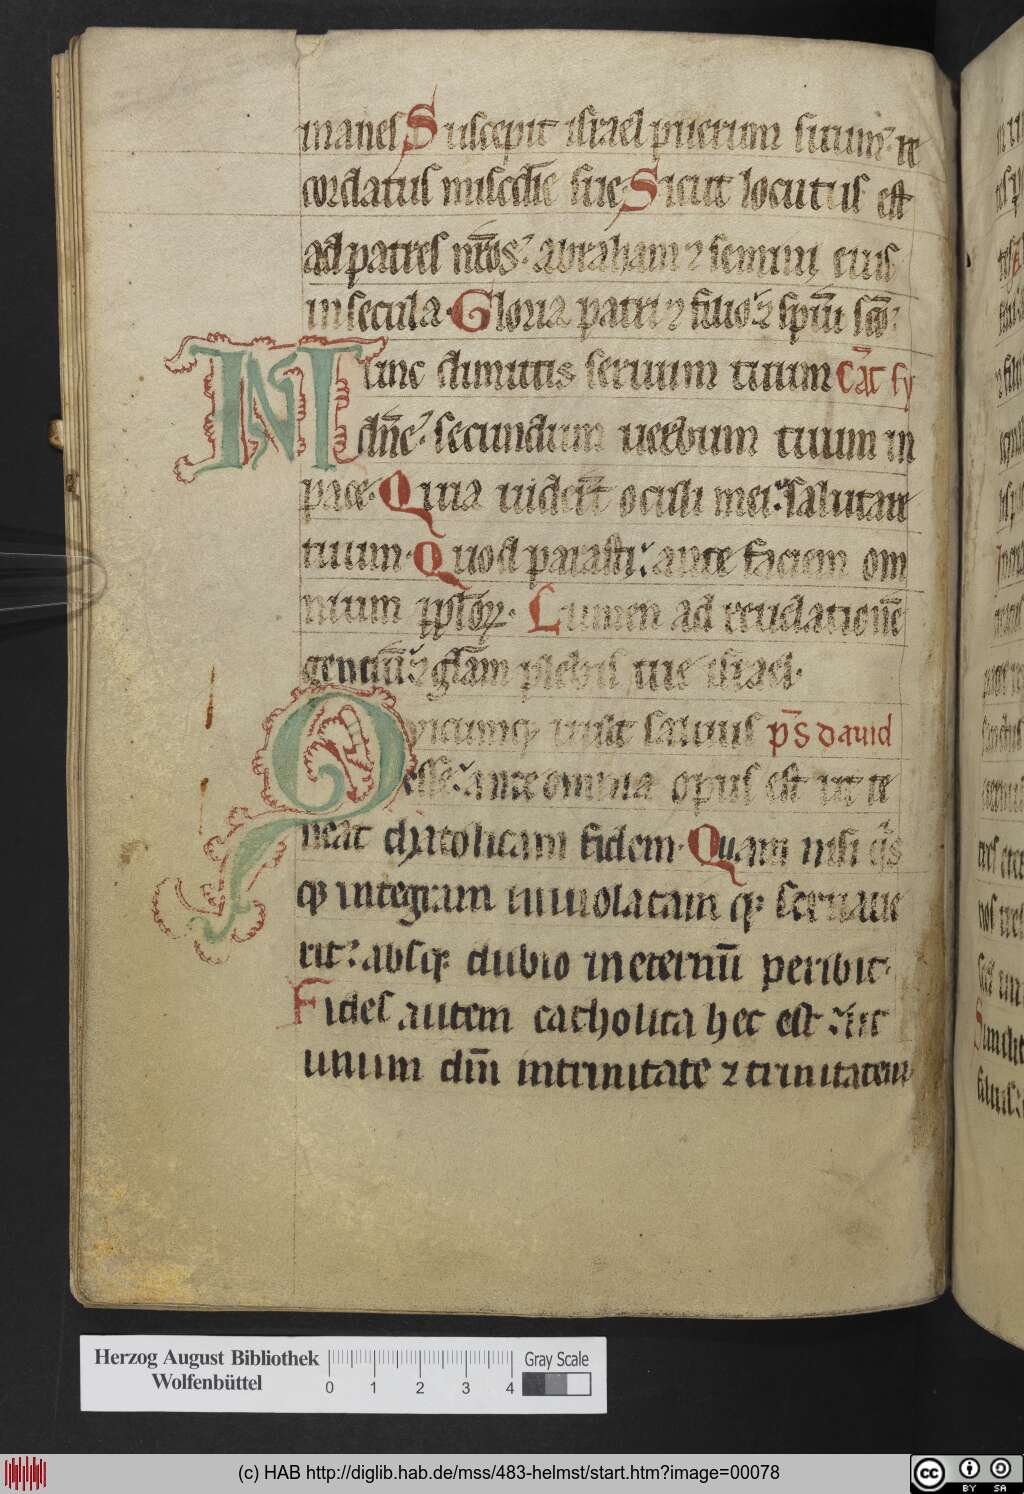 manes Suscepit israel puerum suum: re
cordatus misc̄die sue Sicut locutus est
ad patres nr̄os: abraham ⁊ semini eius
in secula. Gloria patri ⁊ filio: ⁊ spūi sc̄o:
Nunc dimittis seruum tuum Cāt sy
dn̄e: secundum uerbum tuum in
pace. Quia uider̄t oculi mei: salutare
tuum. Quod parasti: ante faciem om
nium ppl̄oꝝ. Lumen ad reuelationē
gentiū: ⁊ glām plebis tue israel.
Quicumqꝫ uult saluus p̄s dauid
esse: ante omnia opus est ut te
neat chatolicam fidem. Quam nisi qͥs
qꝫ integram inuiolatam qꝫ seruaue
rit: absqꝫ dubio in eternū peribit.
Fides autem catholica hec est: ut
unum dm̄ in trinitate ⁊ trinitatem
Herzog August Bibliothek
Wolfenbüttel
0 1 2 3 4
Gray Scale
(c) HAB http://diglib.hab.de/mss/483-helmst/start.htm?image=00078
cc BY SA